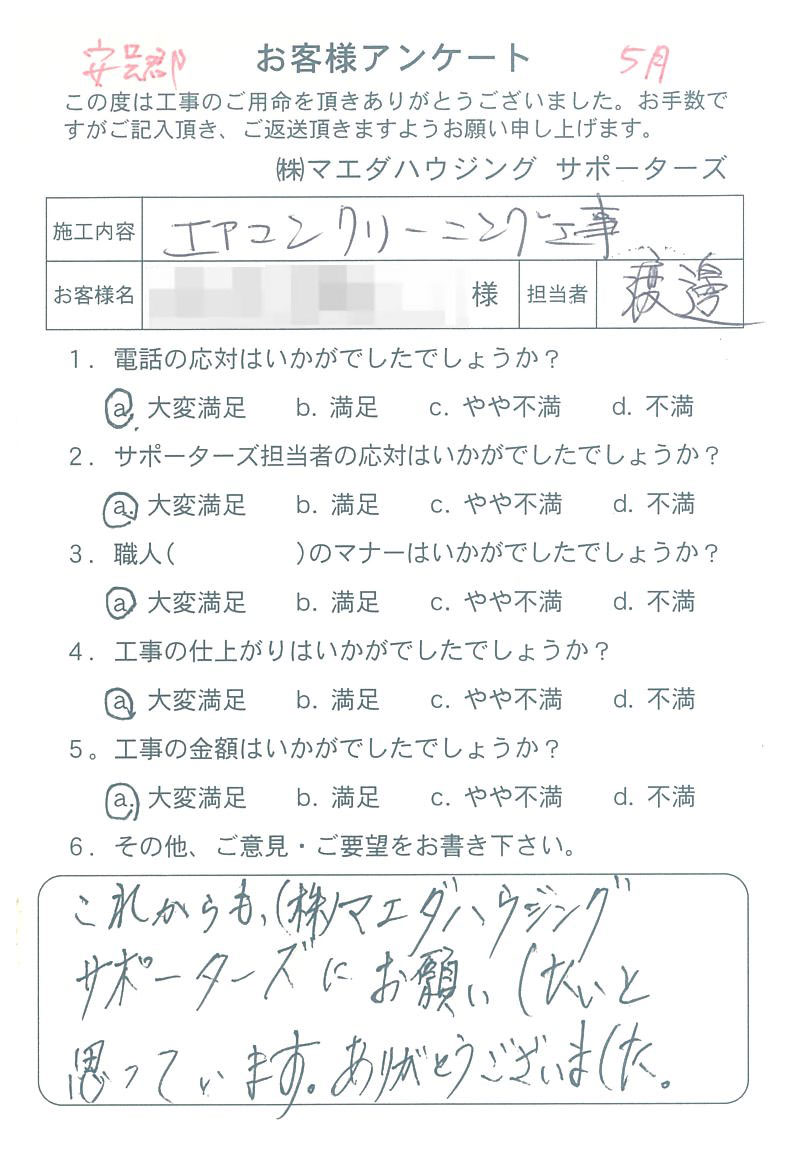 安芸郡 お客様アンケート 5月
この度は工事のご用命を頂きありがとうございました。お手数で
すがご記入頂き、ご返送頂きますようお願い申し上げます。
㈱マエダハウジング サポーターズ
施工内容 エアコンクリーニング工事
お客様名 様 担当者 渡邊
1. 電話の応対はいかがでしたでしょうか？
a. 大変満足 b. 満足 c. やや不満 d. 不満
2. サポーターズ担当者の応対はいかがでしたでしょうか？
a. 大変満足 b. 満足 c. やや不満 d. 不満
3. 職人( )のマナーはいかがでしたでしょうか？
a. 大変満足 b. 満足 c. やや不満 d. 不満
4. 工事の仕上がりはいかがでしたでしょうか？
a. 大変満足 b. 満足 c. やや不満 d. 不満
5。工事の金額はいかがでしたでしょうか？
a. 大変満足 b. 満足 c. やや不満 d. 不満
6. その他、ご意見・ご要望をお書き下さい。
これからも、(株)マエダハウジング
サポーターズにお願いしたいと
思っています。ありがとうございました。